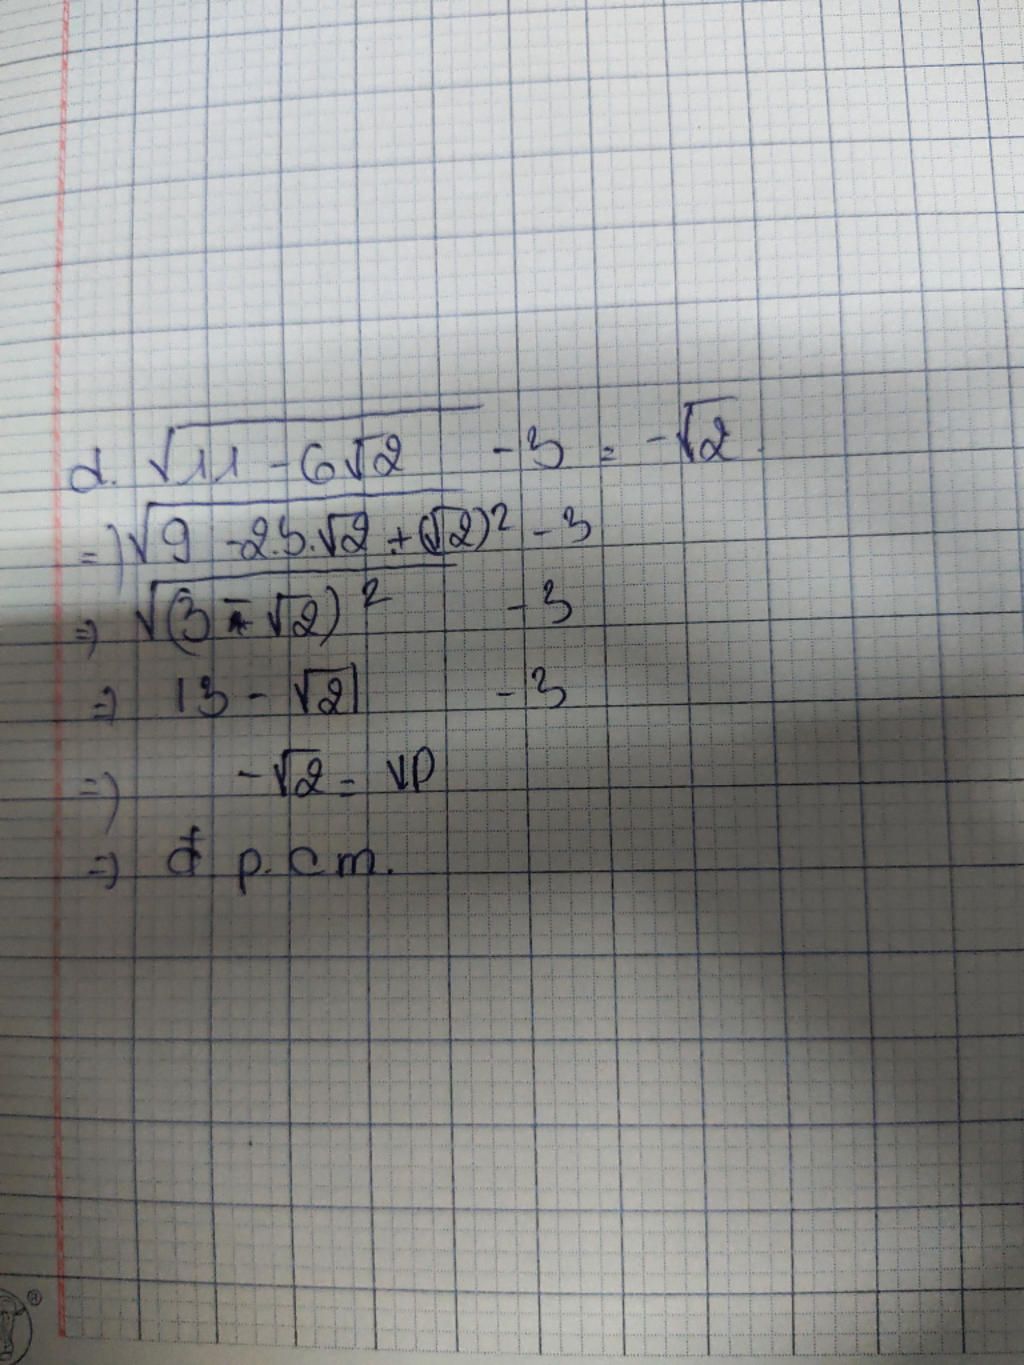 d. √11 - 6√2 - 3 = -√2
=) √9 - 2.3.√2 + (√2)² - 3
=) √(3 - √2)² - 3
=) |3 - √2| - 3
=) -√2 = VP
=) đ p.cm.
®